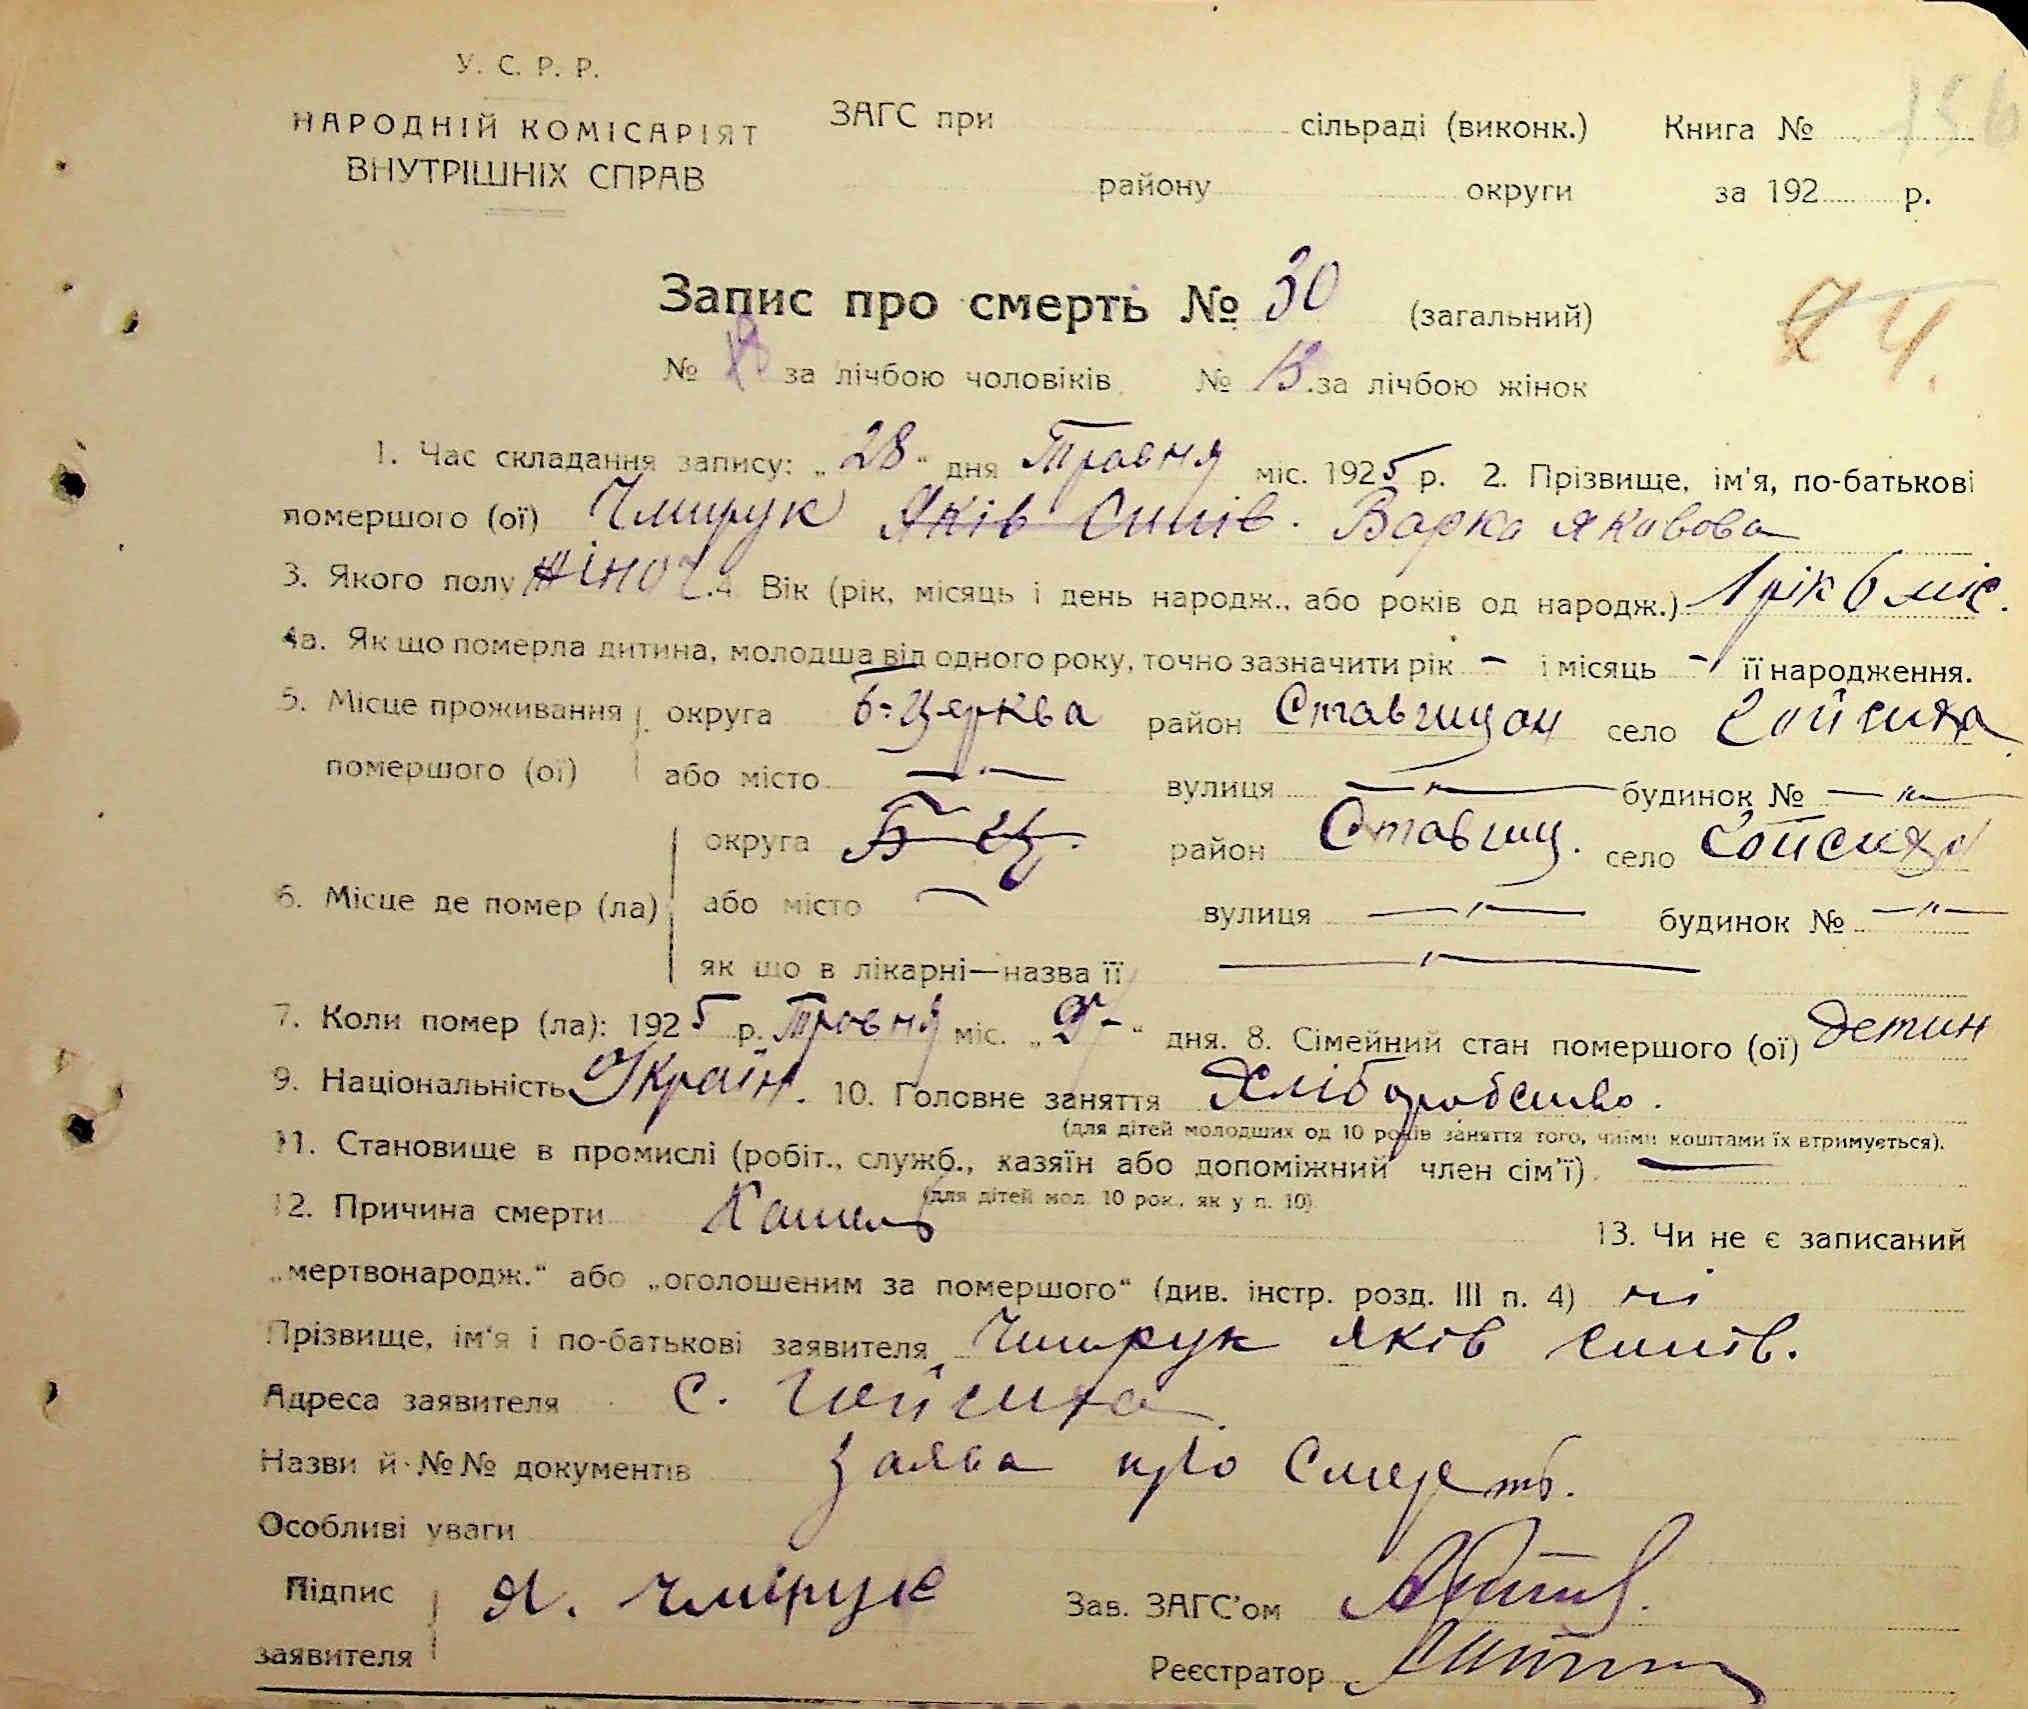 У. С. Р. Р.
НАРОДНІЙ КОМІСАРІЯТ
ВНУТРІШНІХ СПРАВ
ЗАГС при сільраді (виконк.) Книга №
району округи за 192 р.
156
Запис про смерть № 30 (загальний)
№ за лічбою чоловіків № 13 за лічбою жінок
1. Час складання запису: „28“ дня Травня міс. 1925 р. 2. Прізвище, ім'я, по-батькові
помершого (ої) Чмирук Яків Симів. Варка Яковова
3. Якого полу жіноч. 4. Вік (рік, місяць і день народж., або років од народж.) 1 рік 6 міс.
4а. Як що померла дитина, молодша від одного року, точно зазначити рік – і місяць – її народження.
5. Місце проживання округа Б-Церква район Ставищан село Гойсиха
помершого (ої) або місто — " — вулиця — " — будинок № — " —
округа Б Ц. район Ставищ. село Гойсиха
6. Місце де помер (ла) або місто — вулиця — " — будинок № — " —
як що в лікарні—назва її — " —
7. Коли помер (ла): 1925 р. Травня міс. „ “ дня. 8. Сімейний стан помершого (ої) детин
9. Національність Україн. 10. Головне заняття Хліборобство.
(для дітей молодших од 10 років заняття того, чиїми коштами їх втримується).
11. Становище в промислі (робіт., служб., хазяїн або допоміжний член сім'ї) —
(для дітей мол. 10 рок., як у п. 10)
12. Причина смерти Кашель
13. Чи не є записаний
„мертвонародж.“ або „оголошеним за помершого“ (див. інстр. розд. III п. 4) ні
Прізвище, ім'я і по-батькові заявителя Чмирук Яків Симів.
Адреса заявителя с. Гойсиха
Назви й №№ документів Заява про Смерть.
Особливі уваги
Підпис заявителя Я. Чмірук
Зав. ЗАГС'ом
Реєстратор